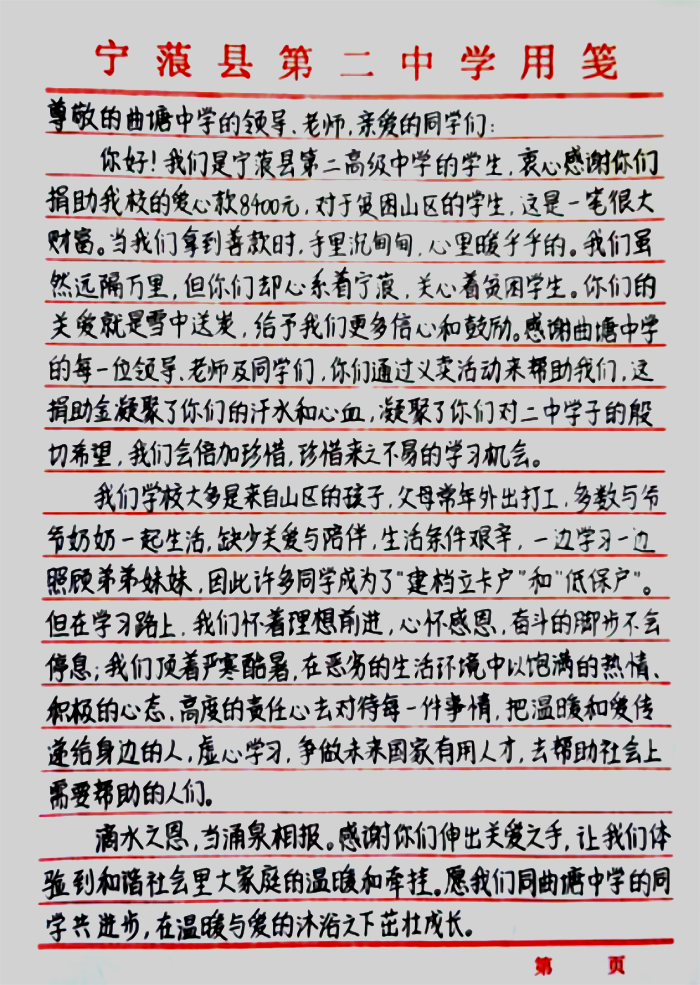 宁蒗县第二中学用笺
尊敬的曲塘中学的领导、老师,亲爱的同学们:
你好!我们是宁蒗县第二高级中学的学生,衷心感谢你们
捐助我校的爱心款8400元,对于贫困山区的学生,这是一笔很大
财富。当我们拿到善款时,手里沉甸甸,心里暖乎乎的。我们虽
然远隔万里,但你们却心系着宁蒗,关心着贫困学生。你们的
关爱就是雪中送炭,给予我们更多信心和鼓励。感谢曲塘中学
的每一位领导、老师及同学们,你们通过义卖活动来帮助我们,这
捐助金凝聚了你们的汗水和心血,凝聚了你们对二中学子的殷
切希望,我们会倍加珍惜,珍惜来之不易的学习机会。
我们学校大多是来自山区的孩子,父母常年外出打工,多数与爷
爷奶奶一起生活,缺少关爱与陪伴,生活条件艰辛,一边学习一边
照顾弟弟妹妹,因此许多同学成为了"建档立卡户"和"低保户"。
但在学习路上,我们怀着理想前进,心怀感恩,奋斗的脚步不会
停息;我们顶着严寒酷暑,在恶劣的生活环境中以饱满的热情、
积极的心态、高度的责任心去对待每一件事情,把温暖和爱传
递给身边的人,虚心学习,争做未来国家有用人才,去帮助社会上
需要帮助的人们。
滴水之恩,当涌泉相报。感谢你们伸出关爱之手,让我们体
验到和谐社会里大家庭的温暖和牵挂。愿我们同曲塘中学的同
学共进步,在温暖与爱的沐浴之下茁壮成长。
第 页